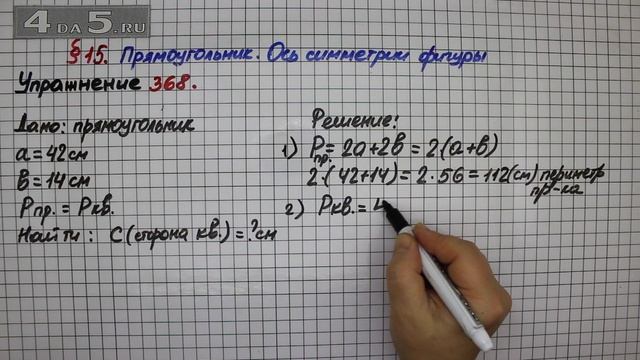 4 DA 5.RU
§ 15. Прямоугольник. Ось симметрии фигуры
Упражнение 368.
Дано: прямоугольник
a = 42 см
b = 14 см
Pпр. = Pкв.
Найти: C (сторона кв.) = ? см
Решение:
1) Pпр. = 2a + 2b = 2(a + b)
2·(42+14) = 2·56 = 112 (см) периметр
пр-ка
2) Pкв. = 4